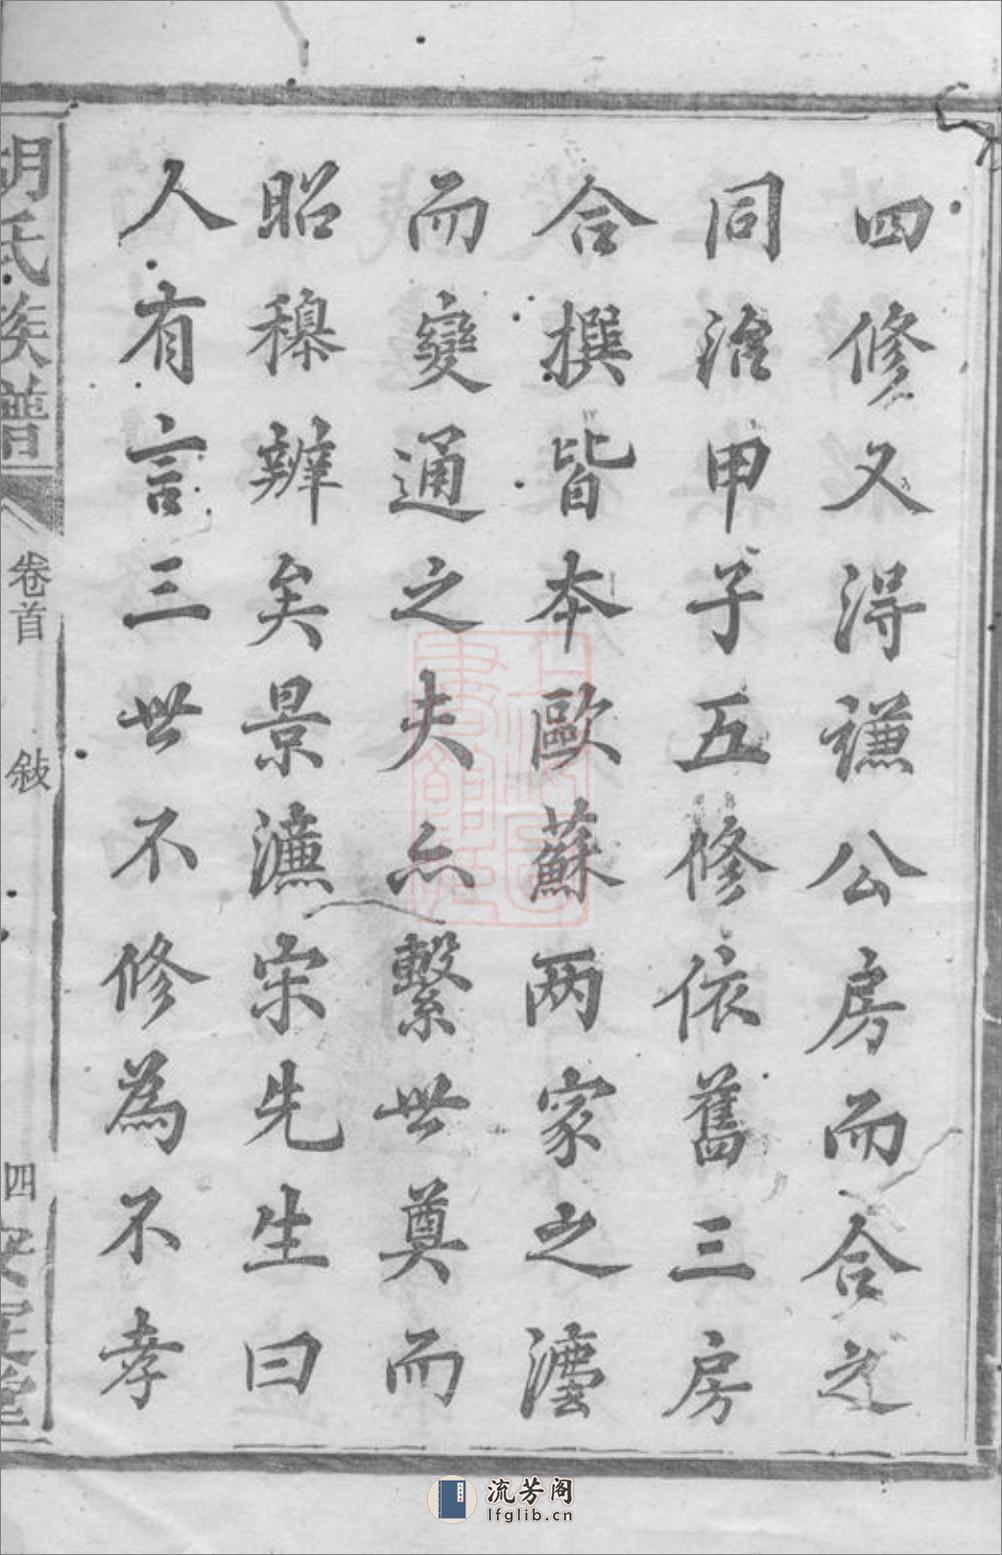 四修又得謙公房而合之
同治甲子五修依舊三房
合撰皆本歐蘇两家之灋
而變通之夫亦繫世奠而
昭穆辨矣景濂宋先生曰
人有言三世不修為不孝
胡氏族譜
卷首
敍
四
安定堂
流芳阁
lfglib.cn